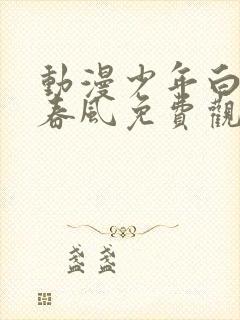 動漫少年白
春風免費觀
盞盞